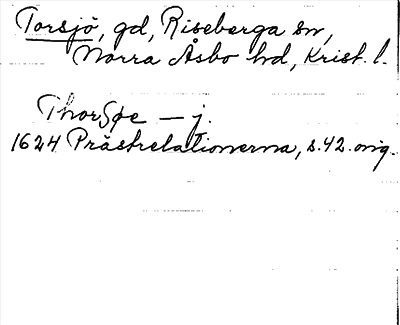 Torsjö, gd, Riseberga sn,
Norra Åsbo hd, Krist. l.
Thorsøe — j.
1624 Prästrelationerna, s. 42. orig.